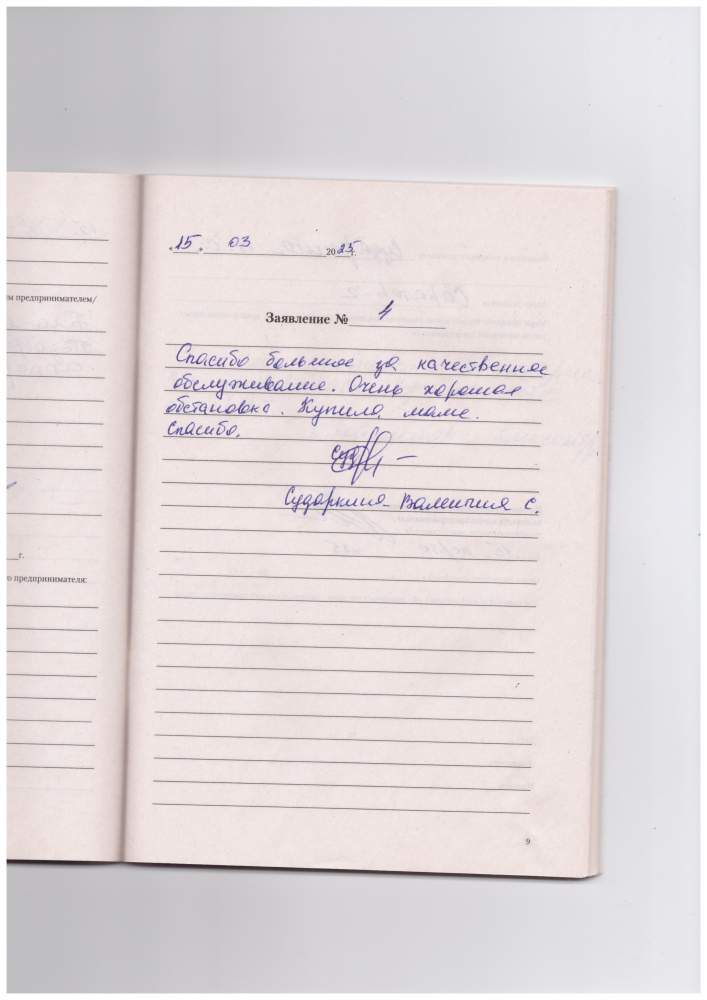 ем предпринимателем/
г.
о предпринимателя:
"15" 03 2025г.
Заявление № 4
Спасибо большое за качественное
обслуживание. Очень хорошая
обстановка. Купила маме.
Спасибо.
Сударкина Валентина С.
9